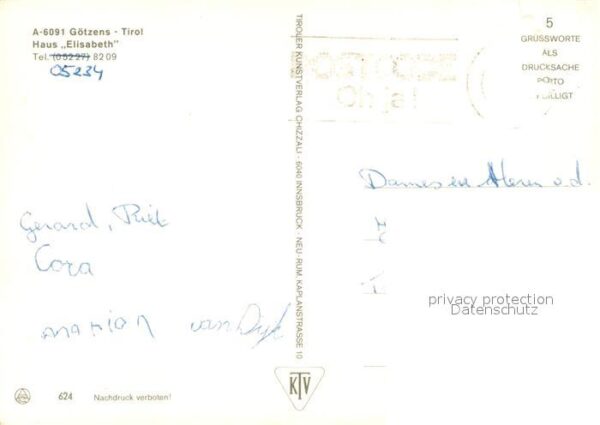 A-6091 Götzens · Tirol
Haus „Elisabeth"
Tel. (05227) 8209
05234
5
GRUSSWORTE
ALS
DRUCKSACHE
PORTO
Oh ja!
TIROLER KUNSTVERLAG CHIZZALI · 6040 INNSBRUCK · NEU-RUM, KAPLANSTRASSE 10
Dames en Heren v.d.
Gerard, Riet
Cora
marian van Dyk
privacy protection
Datenschutz
KTV
624 Nachdruck verboten!